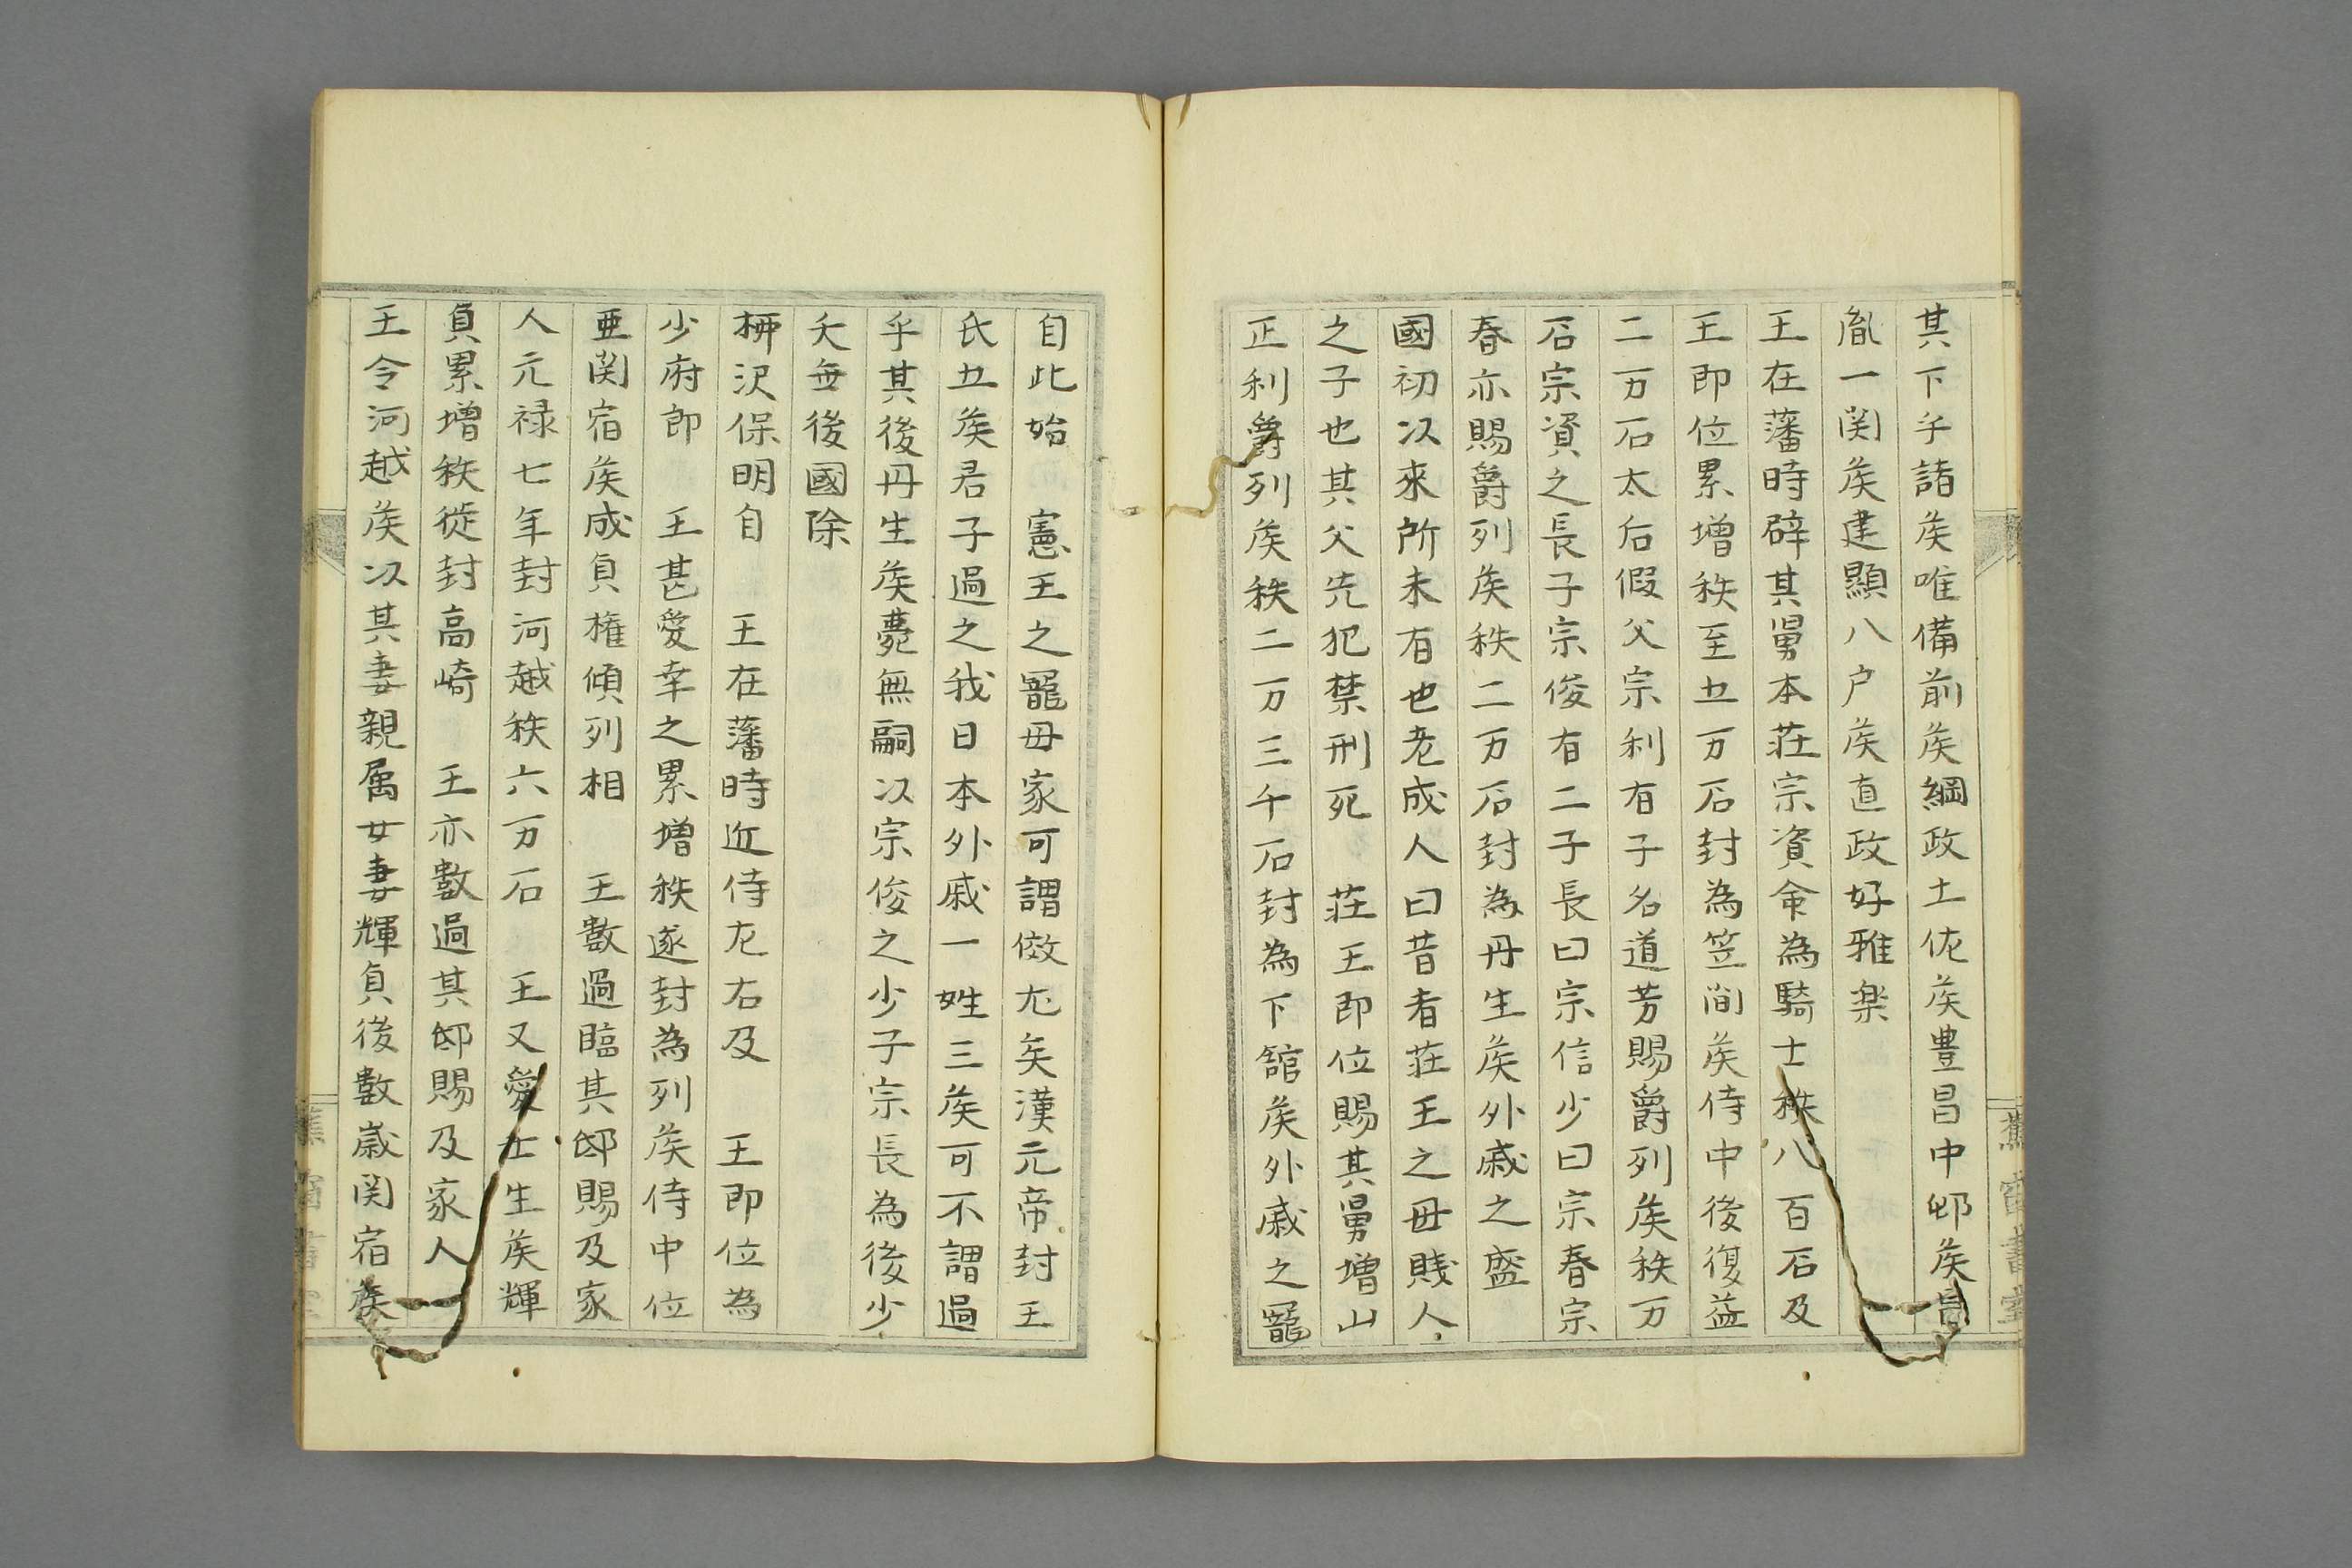 其下乎諸矦唯備前矦綱政土佐矦豊昌中邸矦昌
胤一関矦建顯八戸矦直政好雅楽
王在藩時辟其舅本莊宗資命為騎士秩八百石及
王即位累增秩至五万石封為笠間矦侍中後復益
二万石太后假父宗利有子名道芳賜爵列矦秩万
石宗資之長子宗俊有二子長曰宗信少曰宗春宗
春亦賜爵列矦秩二万石封為丹生矦外戚之盛
國初以來所未有也老成人曰昔者莊王之母賤人
之子也其父先犯禁刑死　莊王即位賜其舅增山
正利爵列矦秩二万三千石封為下舘矦外戚之寵
自此始　憲王之寵母家可謂傚尤矣漢元帝封王
氏五矦君子過之我日本外戚一姓三矦可不謂過
乎其後丹生矦薨無嗣以宗俊之少子宗長為後少
夭無後國除
柳沢保明自　王在藩時近侍左右及　王即位為
少府郎　王甚愛幸之累增秩遂封為列矦侍中位
亜関宿矦成貞權傾列相　王數過臨其邸賜及家
人元禄七年封河越秩六万石　王又愛壬生矦輝
貞累增秩徙封高崎　王亦數過其邸賜及家人
王令河越矦以其妻親属女妻輝貞後數歳関宿矦
蕉窗書室